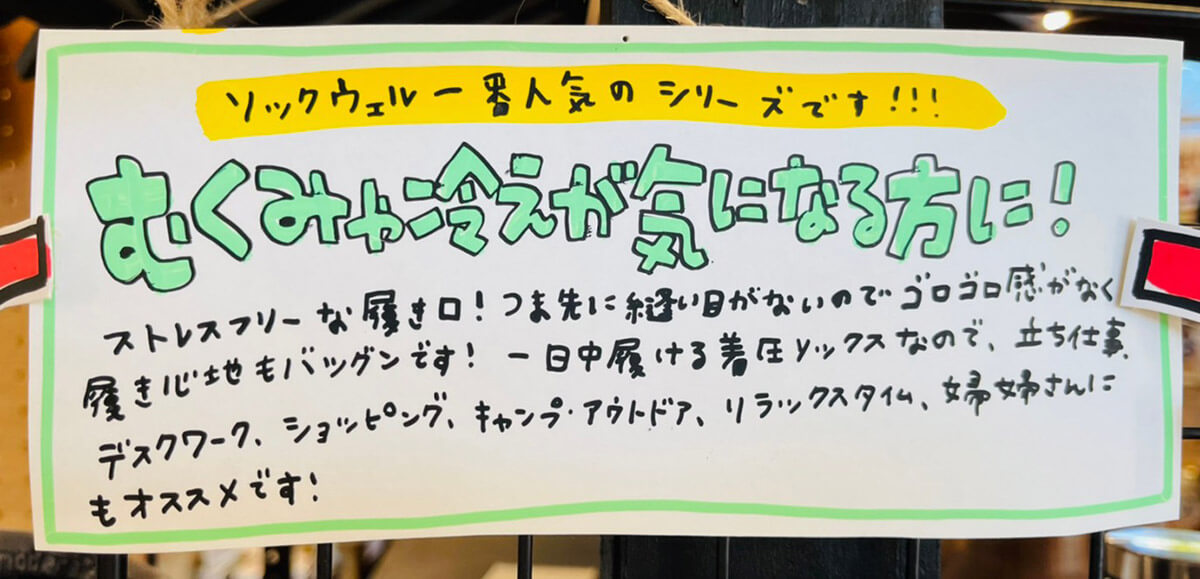 ソックウェル一番人気のシリーズです!!!
むくみや冷えが気になる方に!
ストレスフリーな履き口!つま先に縫い目がないのでゴロゴロ感がなく
履き心地もバツグンです!一日中履ける着圧ソックスなので、立ち仕事、
デスクワーク、ショッピング、キャンプ・アウトドア、リラックスタイム、婦婦さんに
もオススメです!